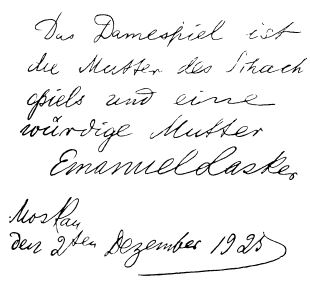 Das Damespiel ist
die Mutter des Schach
spiels und eine
würdige Mutter
Emanuel Lasker
Moskau
den 2ten Dezember 1925